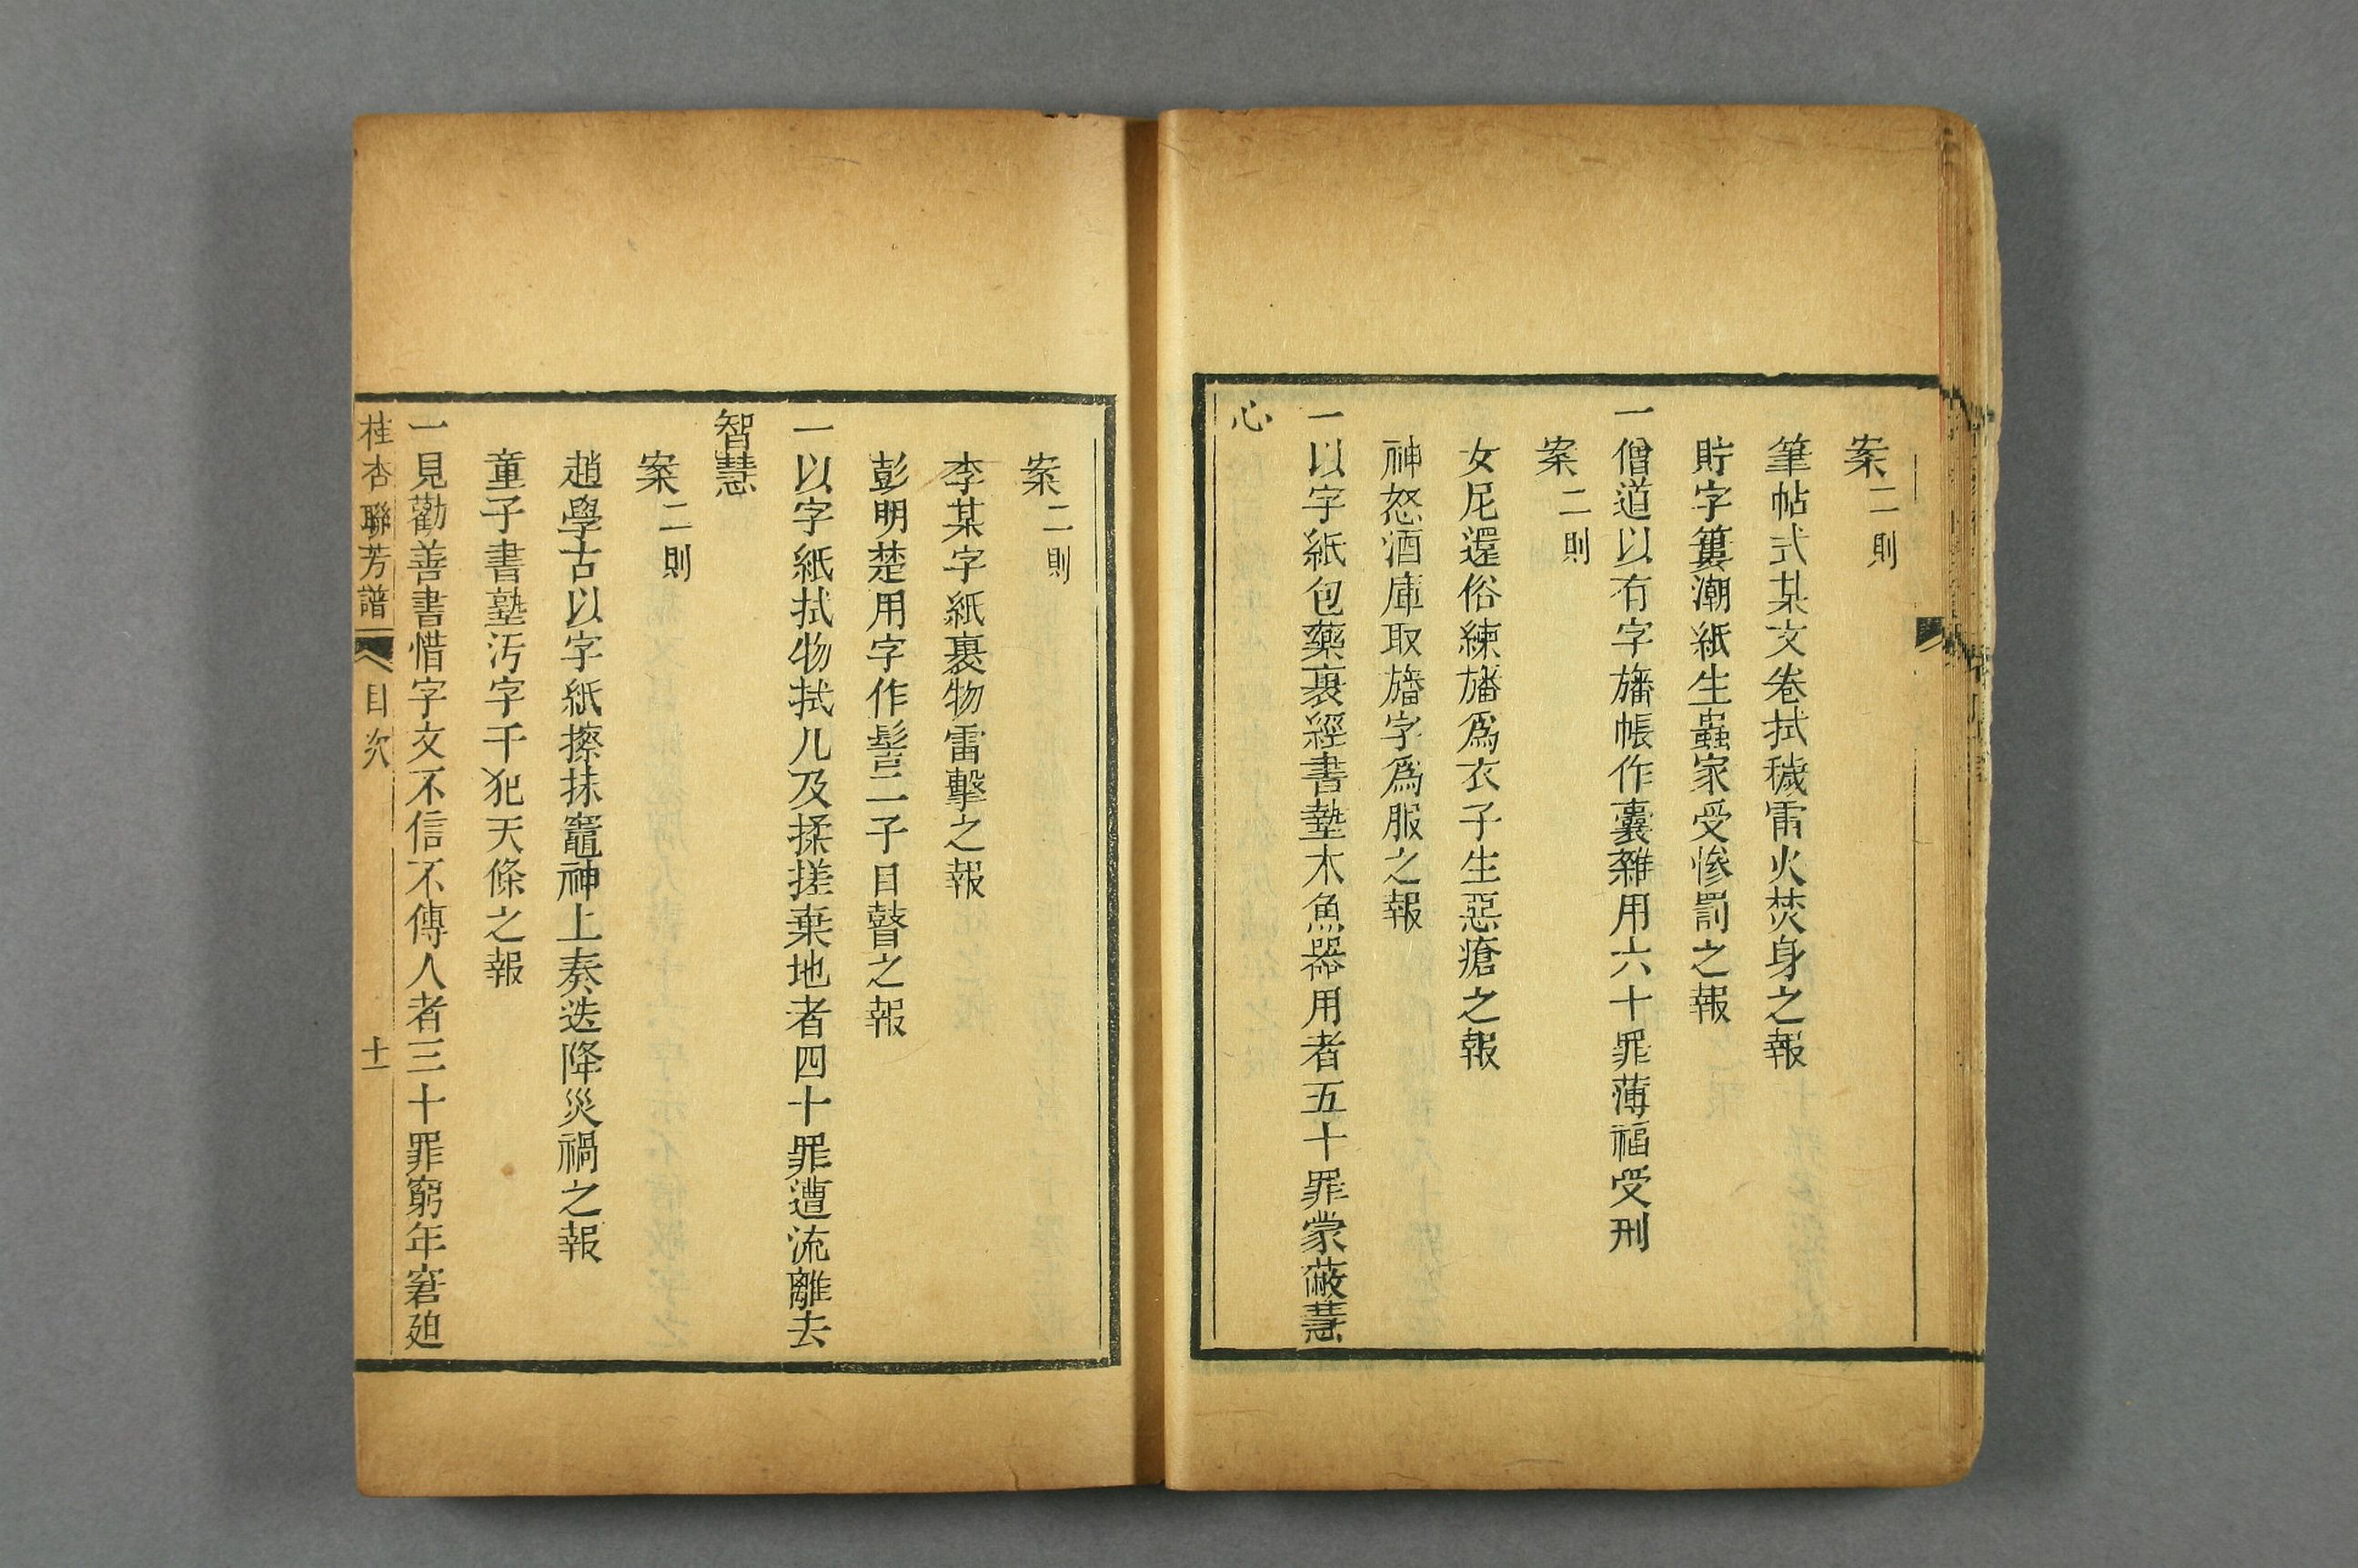 案二則
筆帖式某文卷拭穢雷火焚身之報
貯字簍潮紙生蟲家受慘罰之報
一僧道以有字旛帳作囊雜用六十罪薄福受刑
案二則
女尼還俗練旛爲衣子生惡瘡之報
神怒酒庫取旛字爲服之報
一以字紙包藥裹經書墊木魚器用者五十罪蒙蔽慧
心
案二則
李某字紙裹物雷擊之報
彭明楚用字作髻二子目瞽之報
一以字紙拭物拭几及揉搓棄地者四十罪遭流離去
智慧
案二則
趙學古以字紙擦抹竈神上奏迭降災禍之報
童子書塾汚字干犯天條之報
一見勸善書惜字文不信不傳人者三十罪窮年窘廹
桂杏聯芳譜 目次 十一